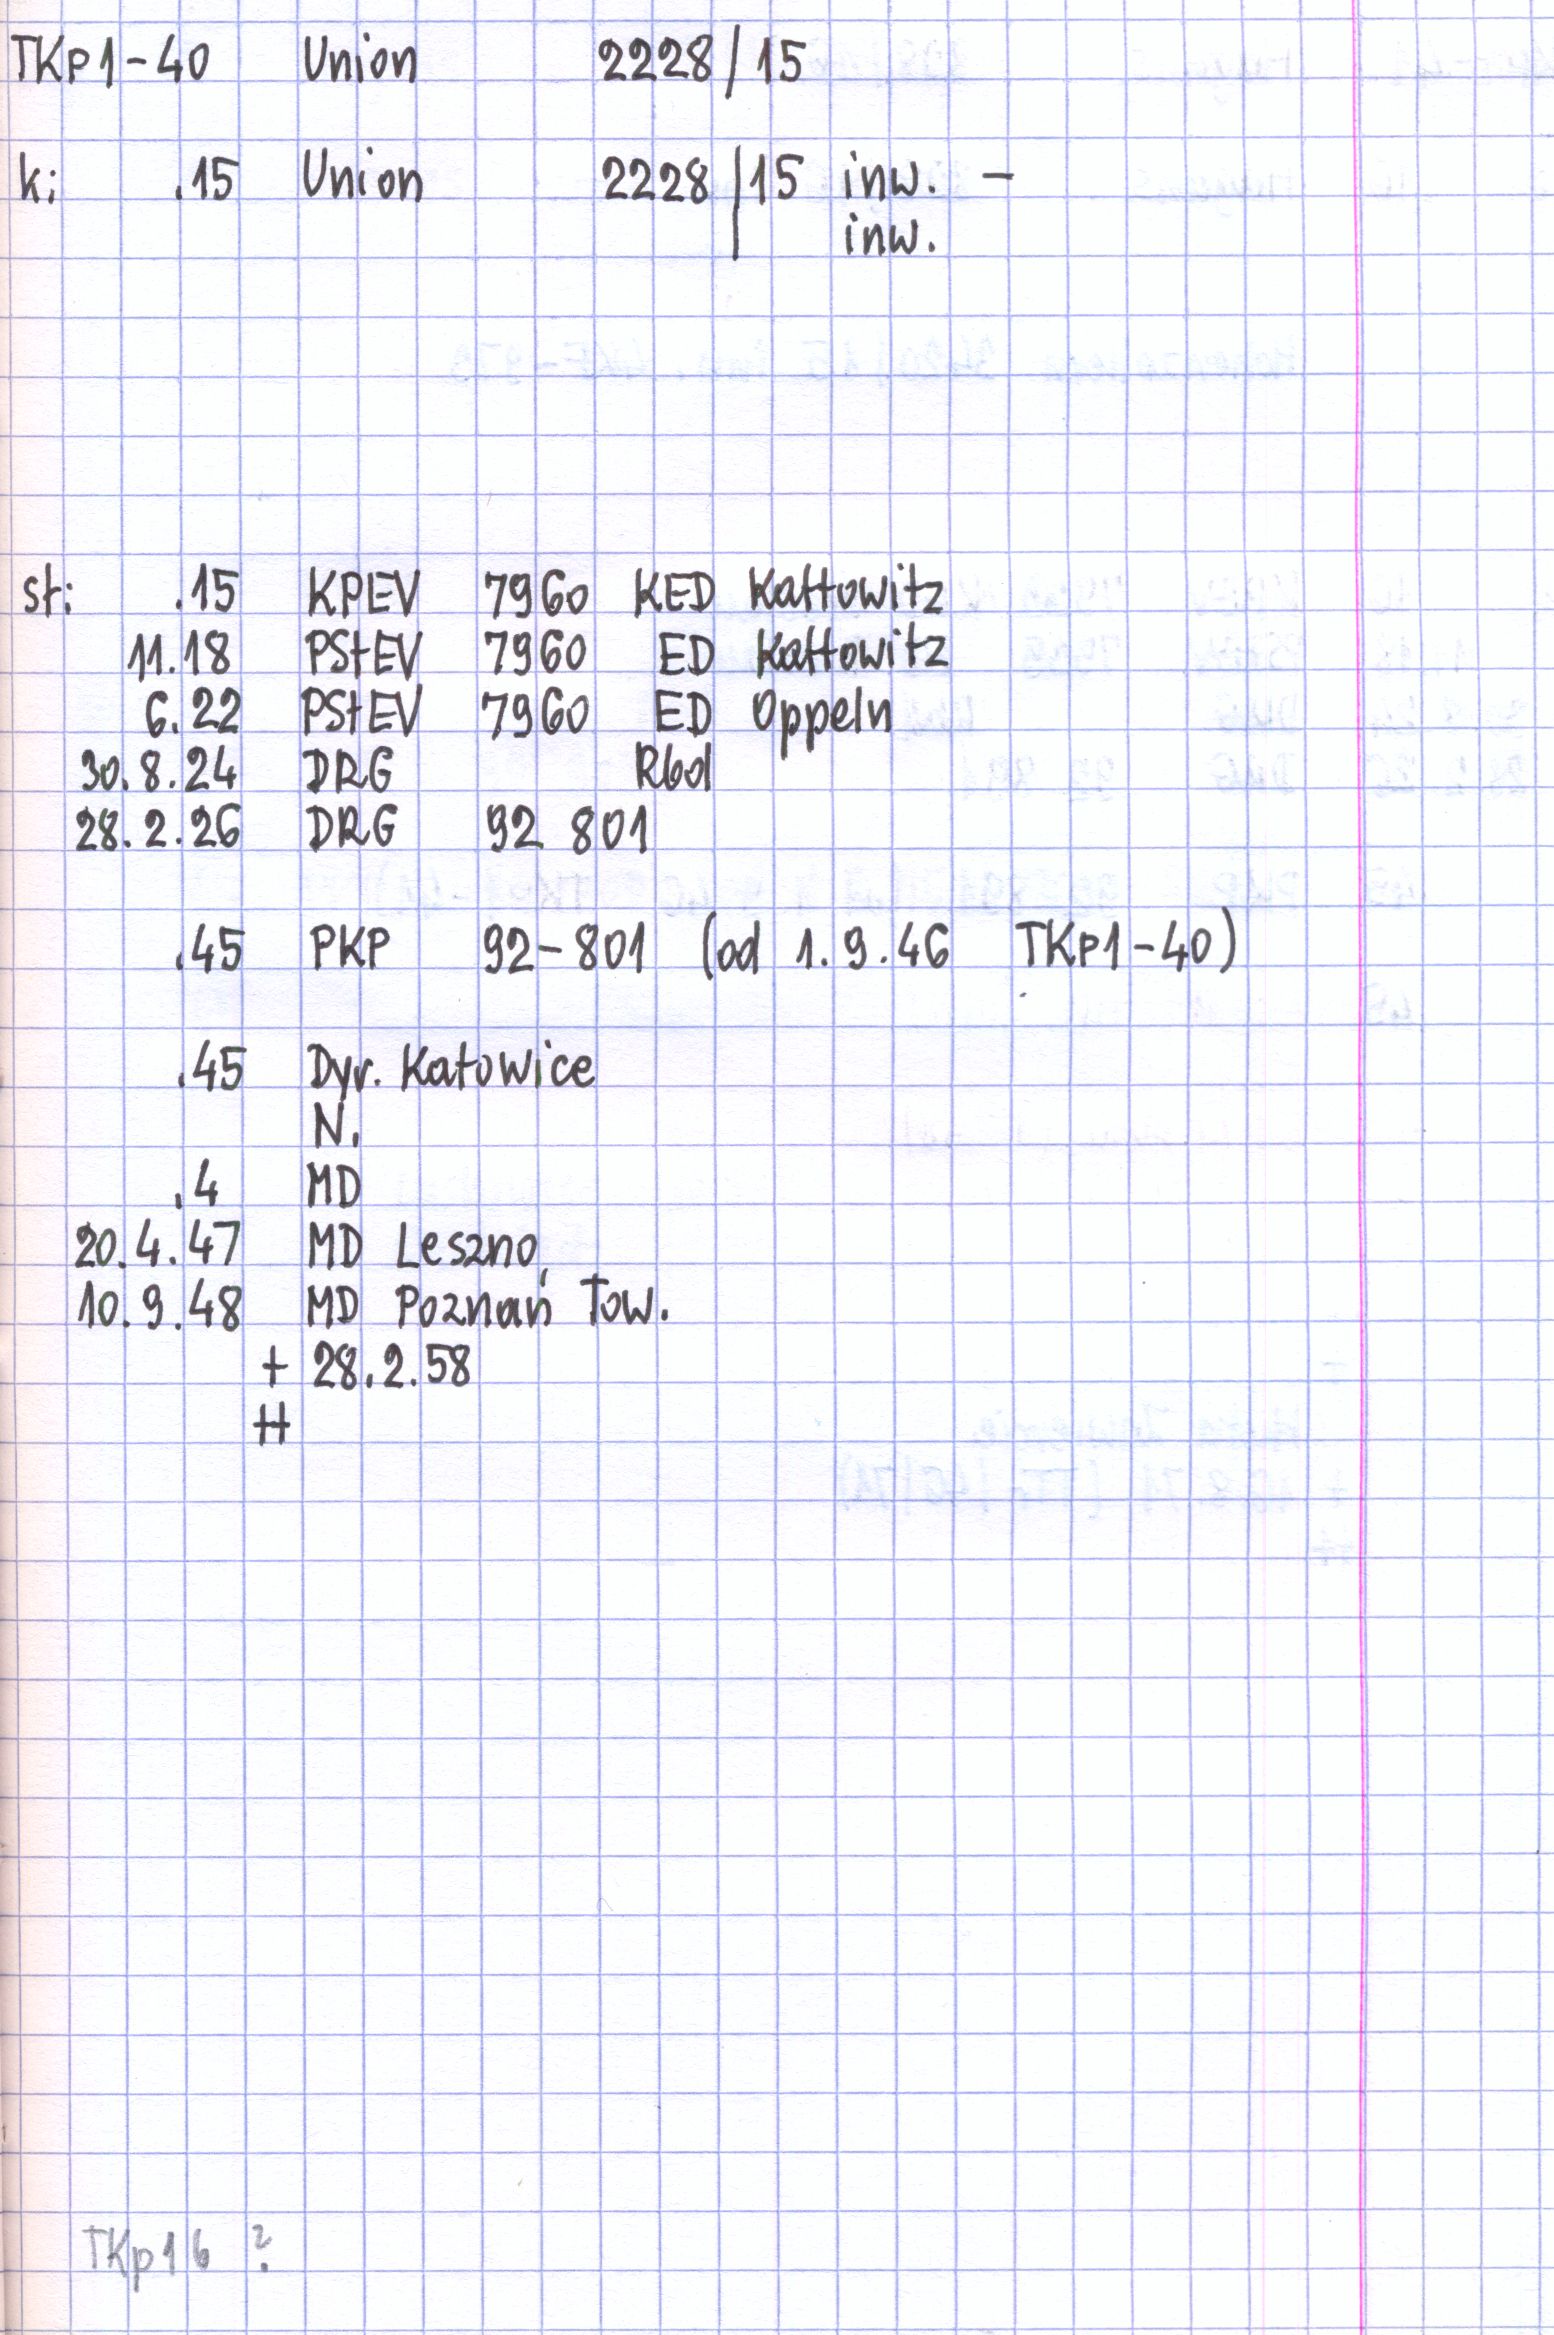 TKp1-40 Union 2228/15
k: .15 Union 2228/15 inw. -
inw.
st: .15 KPEV 7960 KED Kattowitz
11.18 PStEV 7960 ED Kattowitz
6.22 PStEV 7960 ED Oppeln
30.8.24 DRG Rbd
28.2.26 DRG 92 801
.45 PKP 92-801 (od 1.9.46 TKp1-40)
.45 Dyr. Katowice
N.
.4 MD
20.4.47 MD Leszno
10.9.48 MD Poznań Tow.
+ 28.2.58
++
TKp16 ?